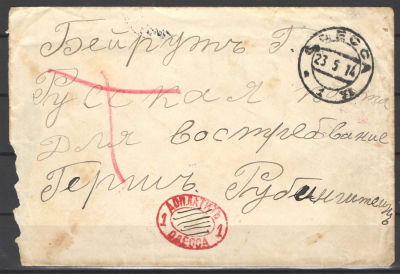 Бейрутъ Г.
ОДЕССА
23 5 14
Русская Почта
Для востребование
Гершъ Рубинштейнъ
ДОПЛАТИТЬ
1 1
ОДЕССА